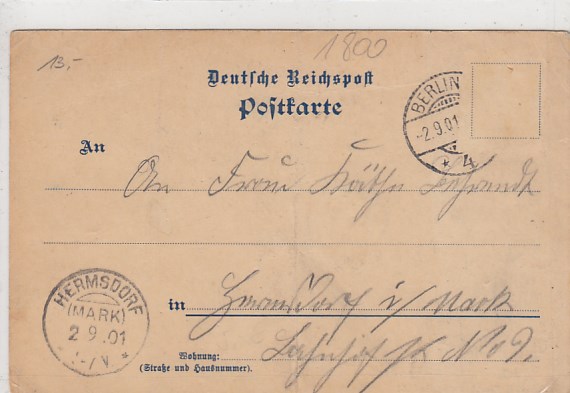 13.-
1800
Deutsche Reichspost
Postkarte
BERLIN
-2.9.01
* 4
An
An Frau Käthe Behrendt
HERMSDORF
(MARK)
2 9.01
in Hermsdorf i/ Mark
Wohnung: Bahnhofstr No 9.
(Straße und Hausnummer).